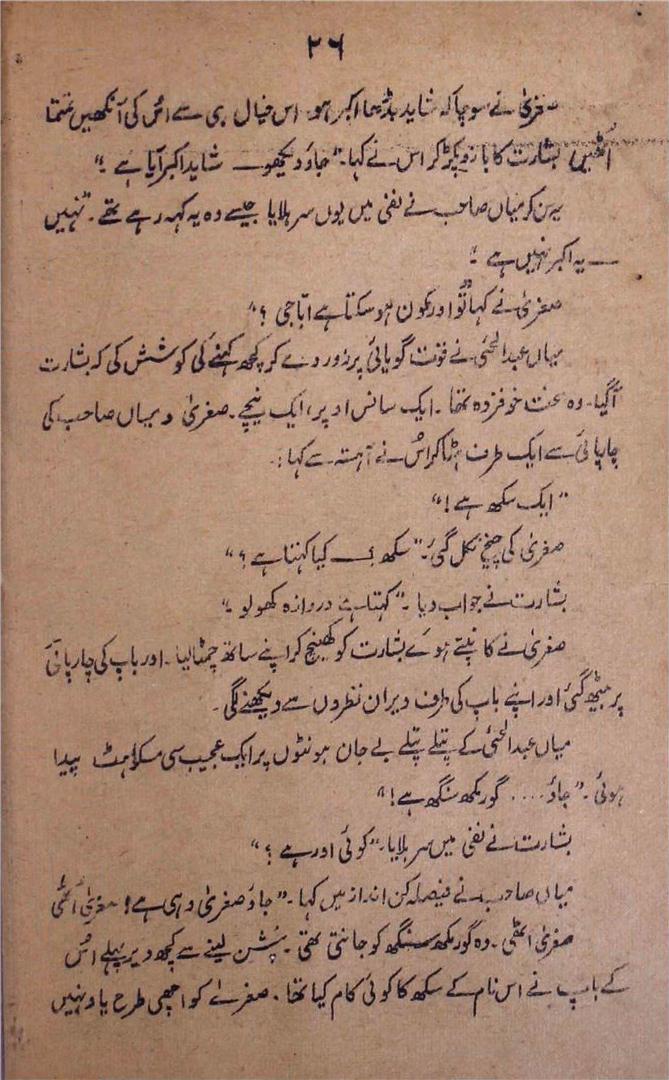 ۲۶
صغریٰ نے سوچا کہ شاید بڈھا اکبر ہو۔ اس خیال ہی سے اس کی آنکھیں تمتما
اُٹھیں بشارت کا بازو پکڑ کر اس نے کہا۔ "جاؤ دیکھو ــــ شاید اکبر آیا ہے۔"
یہ سن کر میاں صاحب نے نفی میں یوں سر ہلایا جیسے وہ یہ کہہ رہے تھے۔ "نہیں
ــــ یہ اکبر نہیں ہے۔"
صغریٰ نے کہا "تو اور کون ہو سکتا ہے ابا جی ؟"
میاں عبدالحئی نے قوت گویائی پر زور دے کر کچھ کہنے کی کوشش کی کہ بشارت
آگیا۔ وہ سخت خوفزدہ تھا۔ ایک سانس اوپر، ایک نیچے۔ صغریٰ و میاں صاحب کی
چارپائی سے ایک طرف ہٹا کر اس نے آہستہ سے کہا :
"ایک سکھ ہے !"
صغریٰ کی چیخ نکل گئی۔ "سکھ ؟ ــــ کیا کہتا ہے ؟"
بشارت نے جواب دیا۔ "کہتا ہے دروازہ کھولو۔"
صغریٰ نے کانپتے ہوئے بشارت کو کھینچ کر اپنے ساتھ چمٹا لیا۔ اور باپ کی چارپائی
پر بیٹھ گئی اور اپنے باپ کی طرف ویران نظروں سے دیکھنے لگی۔
میاں عبدالحئی کے پتلے پتلے بے جان ہونٹوں پر ایک عجیب سی مسکراہٹ پیدا
ہوئی۔ "جاؤ .... گورمکھ سنگھ ہے !"
بشارت نے نفی میں سر ہلایا۔ "کوئی اور ہے ؟"
میاں صاحب نے فیصلہ کن انداز میں کہا۔ "جاؤ صغریٰ وہی ہے ! صغریٰ اُٹھی
صغریٰ اٹھی۔ وہ گورمکھ سنگھ کو جانتی تھی۔ پنشن لینے سے کچھ دیر پہلے اس
کے باپ نے اس نام کے سکھ کا کوئی کام کیا تھا۔ صغریٰ کو اچھی طرح یاد نہیں